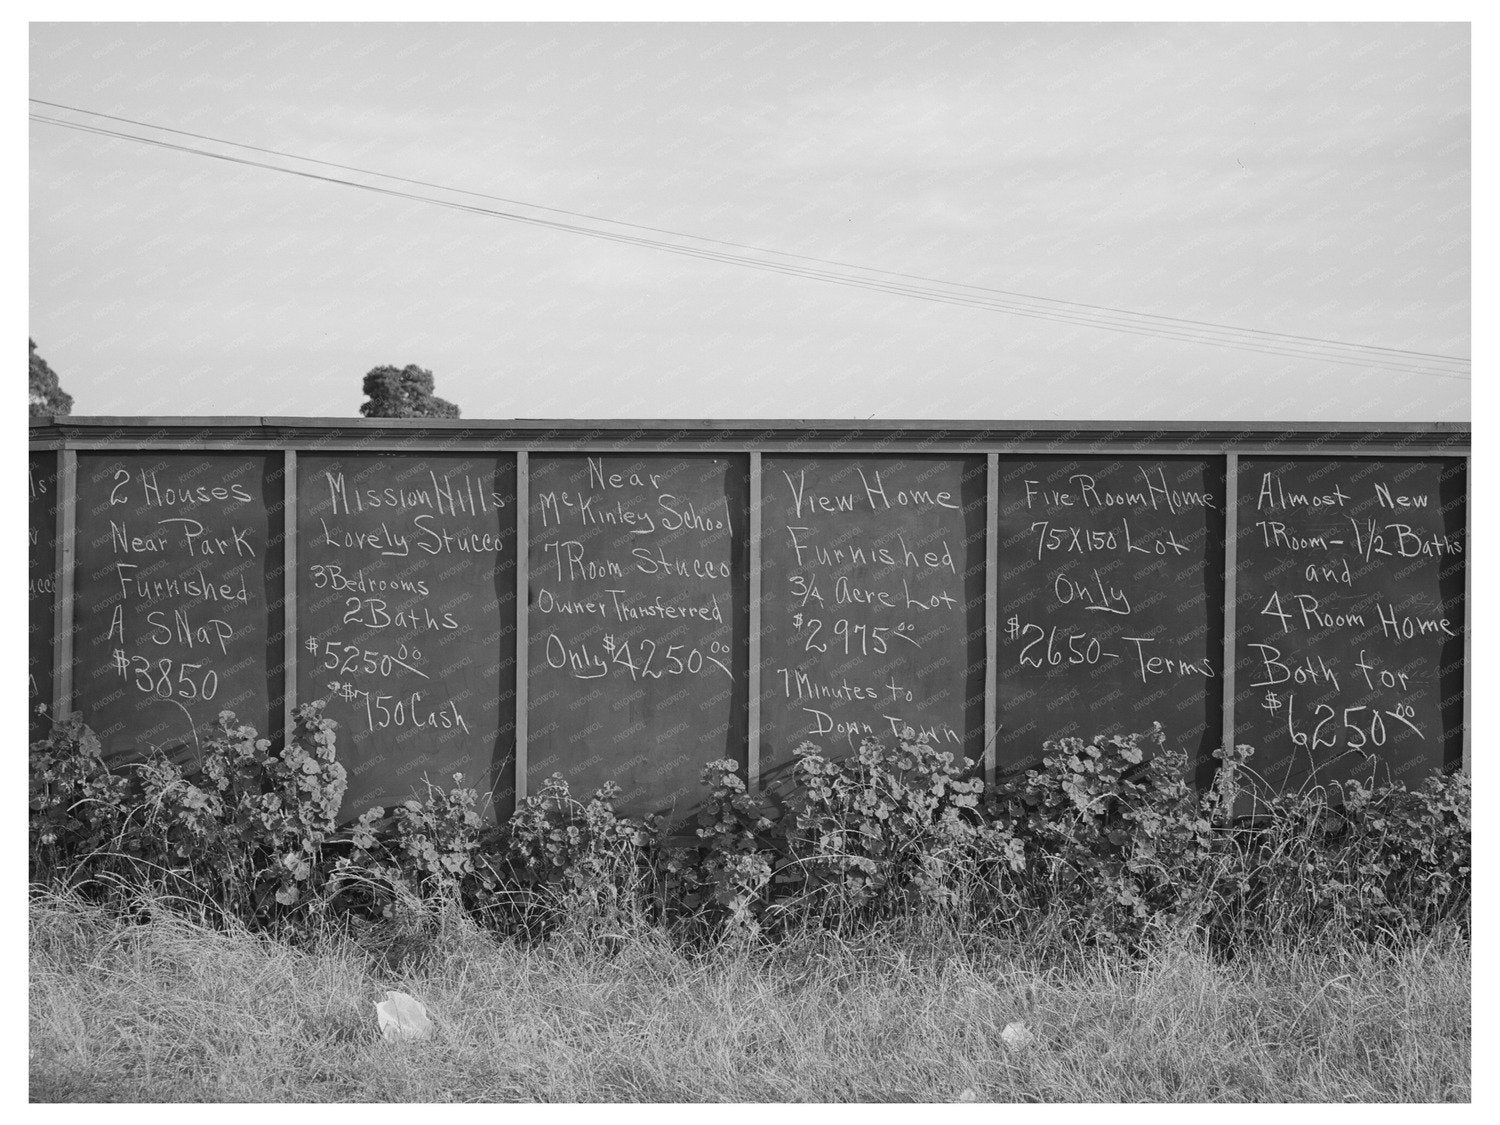 2 Houses
Near Park
Furnished
A SNap
$3850
Mission Hills
Lovely Stucco
3 Bedrooms
2 Baths
$5250 00
$750 Cash
Near
McKinley School
7 Room Stucco
Owner Transferred
Only $4250 00
View Home
Furnished
3/4 Acre Lot
$2975 00
7 Minutes to
Down Town
Five Room Home
75X150 Lot
Only
$2650 - Terms
Almost New
7 Room - 1 1/2 Baths
and
4 Room Home
Both for
$6250 00